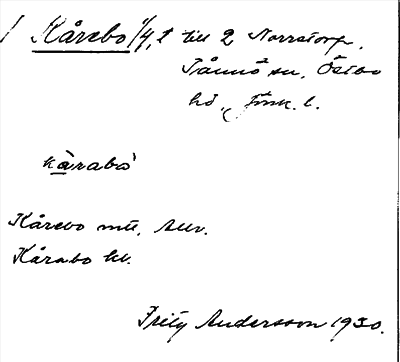 Kårebo 1/4, t till 2 Norrtorp,
Tånnö sn, Östbo
hd, Jönk. l.
kȧrabo`
Kårebo mtl. Auv.
Kårabo hl.
Fritz Andersson 1930.